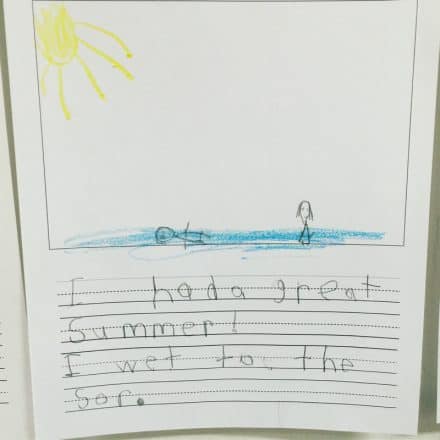 I had a great
Summer!
I wet to the
sor.